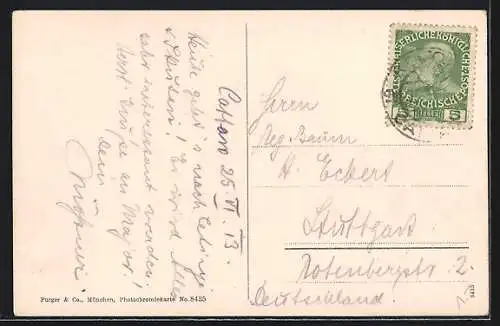 Cattaro 25. VI. 13.
Heute geht's nach Cetinje
u. Skutari! Es wird Alles
sehr interessant werden.
Herzl. Grüße an Major!
Dein
KAISERLICHE KÖNIGLICHE
ÖSTERREICHISCHE POST
5 HELLER 5
Herrn
Reg. Baum
H. Eckert
Stuttgart
Rotenbergstr. 2.
Deutschland.
Purger & Co., München, Photochromiekarte No. 8435